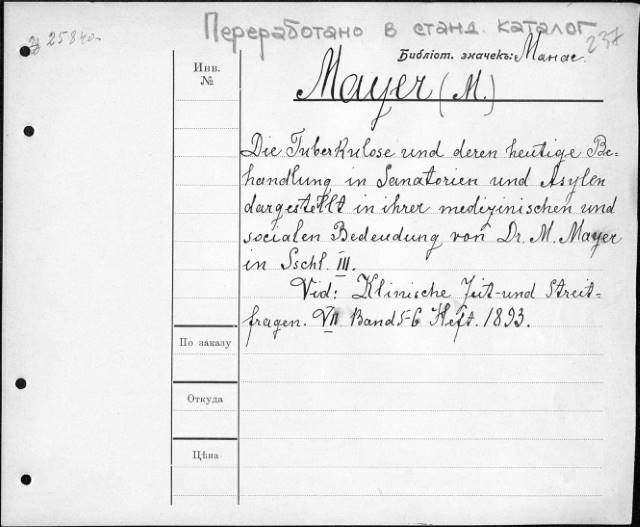 25840.
Переработано в станд. каталог
237
Библіот. значекъ: Манас.
Инв.
№
Mayer (M.)
Die Tuberkulose und deren heutige Be-
handlung in Sanatorien und Asylen
dargestellt in ihrer medizinischen und
socialen Bedeudung von Dr. M. Mayer
in Sschl. III.
Vid: Klinische Zeit- und Streit-
fragen. VII. Band 5-6 Heft. 1893.
По заказу
Откуда
Цѣна